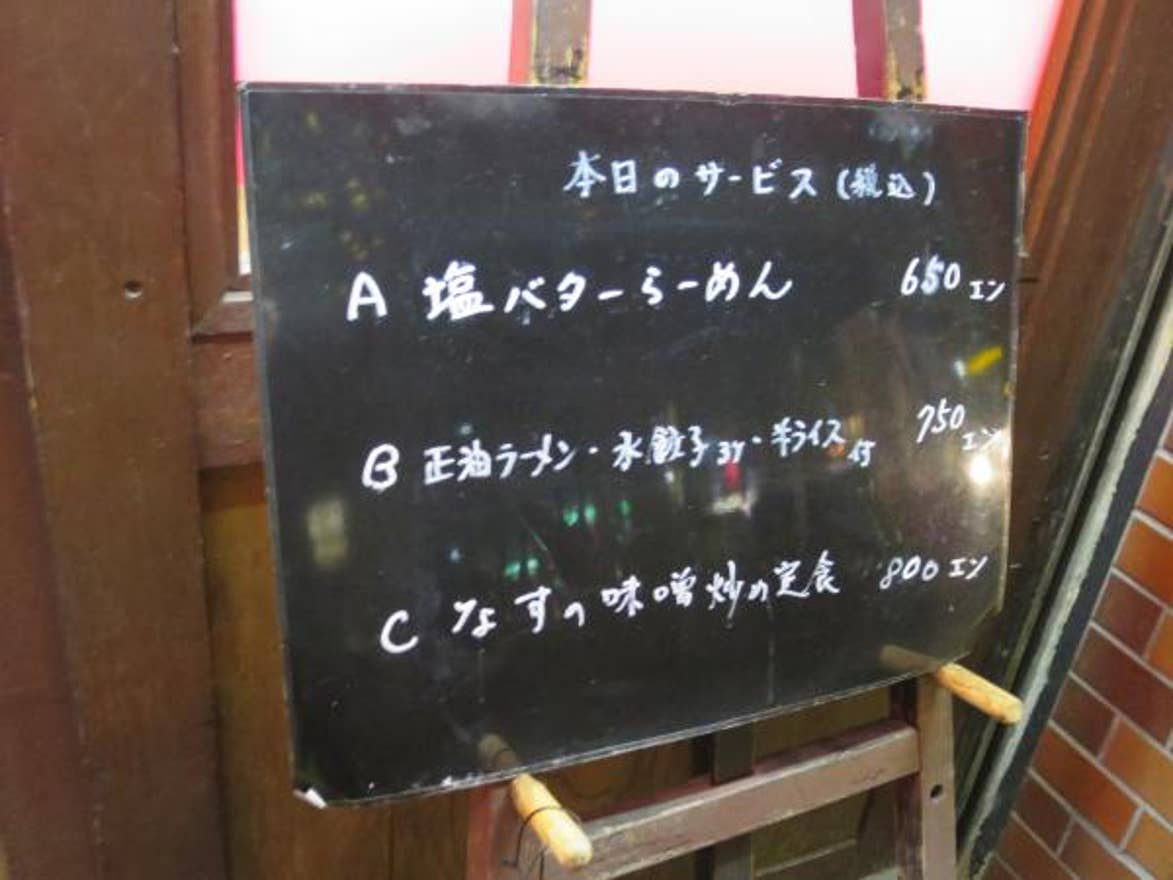 本日のサービス(税込)
A 塩バターらーめん 650エン
B 正油ラーメン・水餃子3ケ・半ライス付 750エン
C なすの味噌炒め定食 800エン